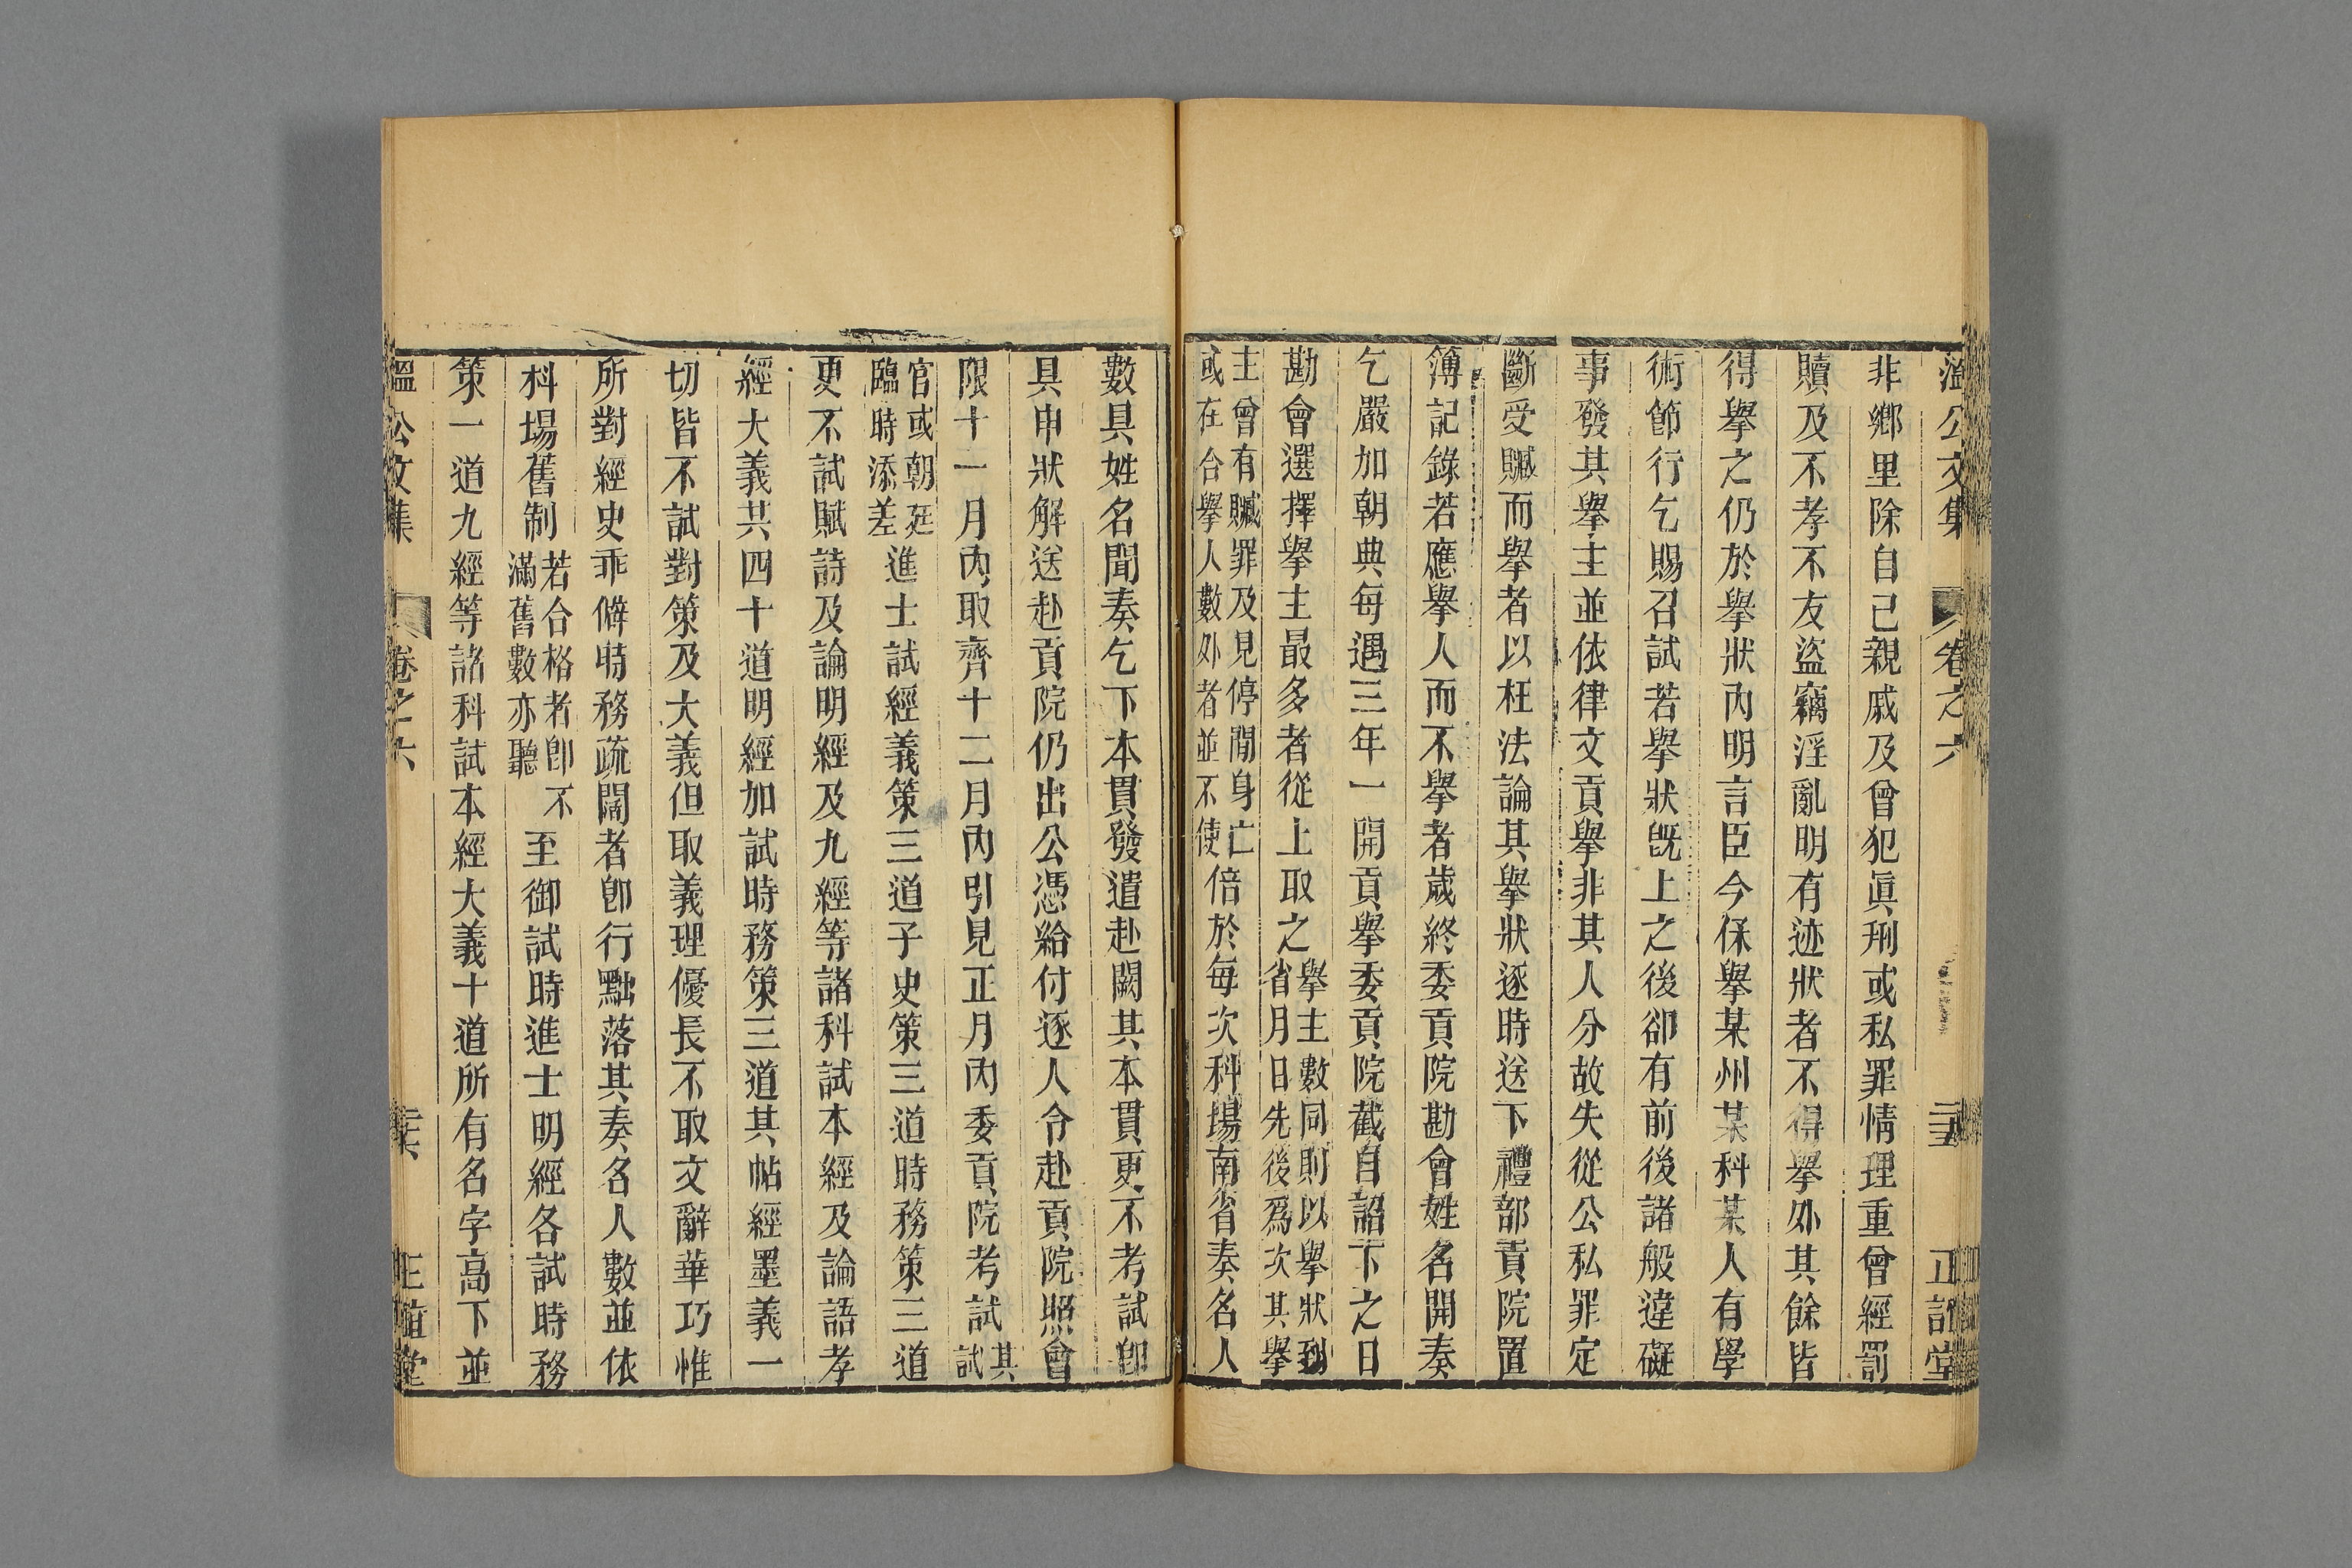 溫公文集 卷之六 二五 正誼堂
非鄉里除自己親戚及曾犯眞刑或私罪情理重曾經罰
贖及不孝不友盜竊淫亂明有迹狀者不得舉外其餘皆
得舉之仍於舉狀內明言臣今保舉某州某科某人有學
術節行乞賜召試若舉狀旣上之後卻有前後諸般違礙
事發其舉主並依律文貢舉非其人分故失從公私罪定
斷受贓而舉者以枉法論其舉狀逐時送下禮部貢院置
簿記錄若應舉人而不舉者歲終委貢院勘會姓名開奏
乞嚴加朝典每遇三年一開貢舉委貢院截自詔下之日
勘會選擇舉主最多者從上取之舉主數同則以舉狀到省月日先後爲次其舉
主曾有贓罪及見停閒身亡或在合舉人數外者並不使倍於每次科場南省奏名人
數具姓名聞奏乞下本貫發遣赴闕其本貫更不考試卽
具申狀解送赴貢院仍出公憑給付逐人令赴貢院照會
限十一月內取齊十二月內引見正月內委貢院考試其試
官或朝廷臨時添差進士試經義策三道子史策三道時務策三道
更不試賦詩及論明經及九經等諸科試本經及論語孝
經大義共四十道明經加試時務策三道其帖經墨義一
切皆不試對策及大義但取義理優長不取文辭華巧惟
所對經史乖僻時務疏闊者卽行黜落其奏名人數並依
科場舊制若合格者卽不滿舊數亦聽至御試時進士明經各試時務
策一道九經等諸科試本經大義十道所有名字高下並
溫公文集 卷之六 二六 正誼堂